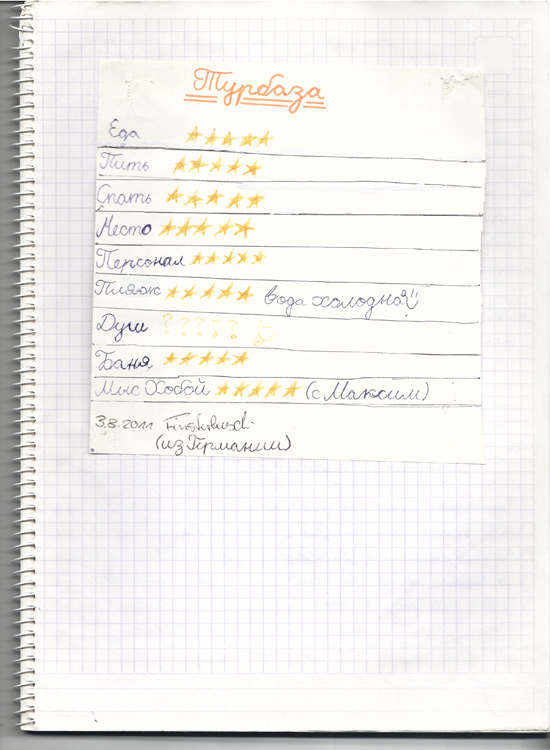 Турбаза
Еда ★★★★★
Пить ★★★★★
Спать ★★★★★
Место ★★★★★
Персонал ★★★★★
Пляж ★★★★★ вода холодно
Душ ? ? ? ? ?
Баня ★★★★★
Мыс Хобой ★★★★★ (с Максим)
3.8.2011
(из Германии)